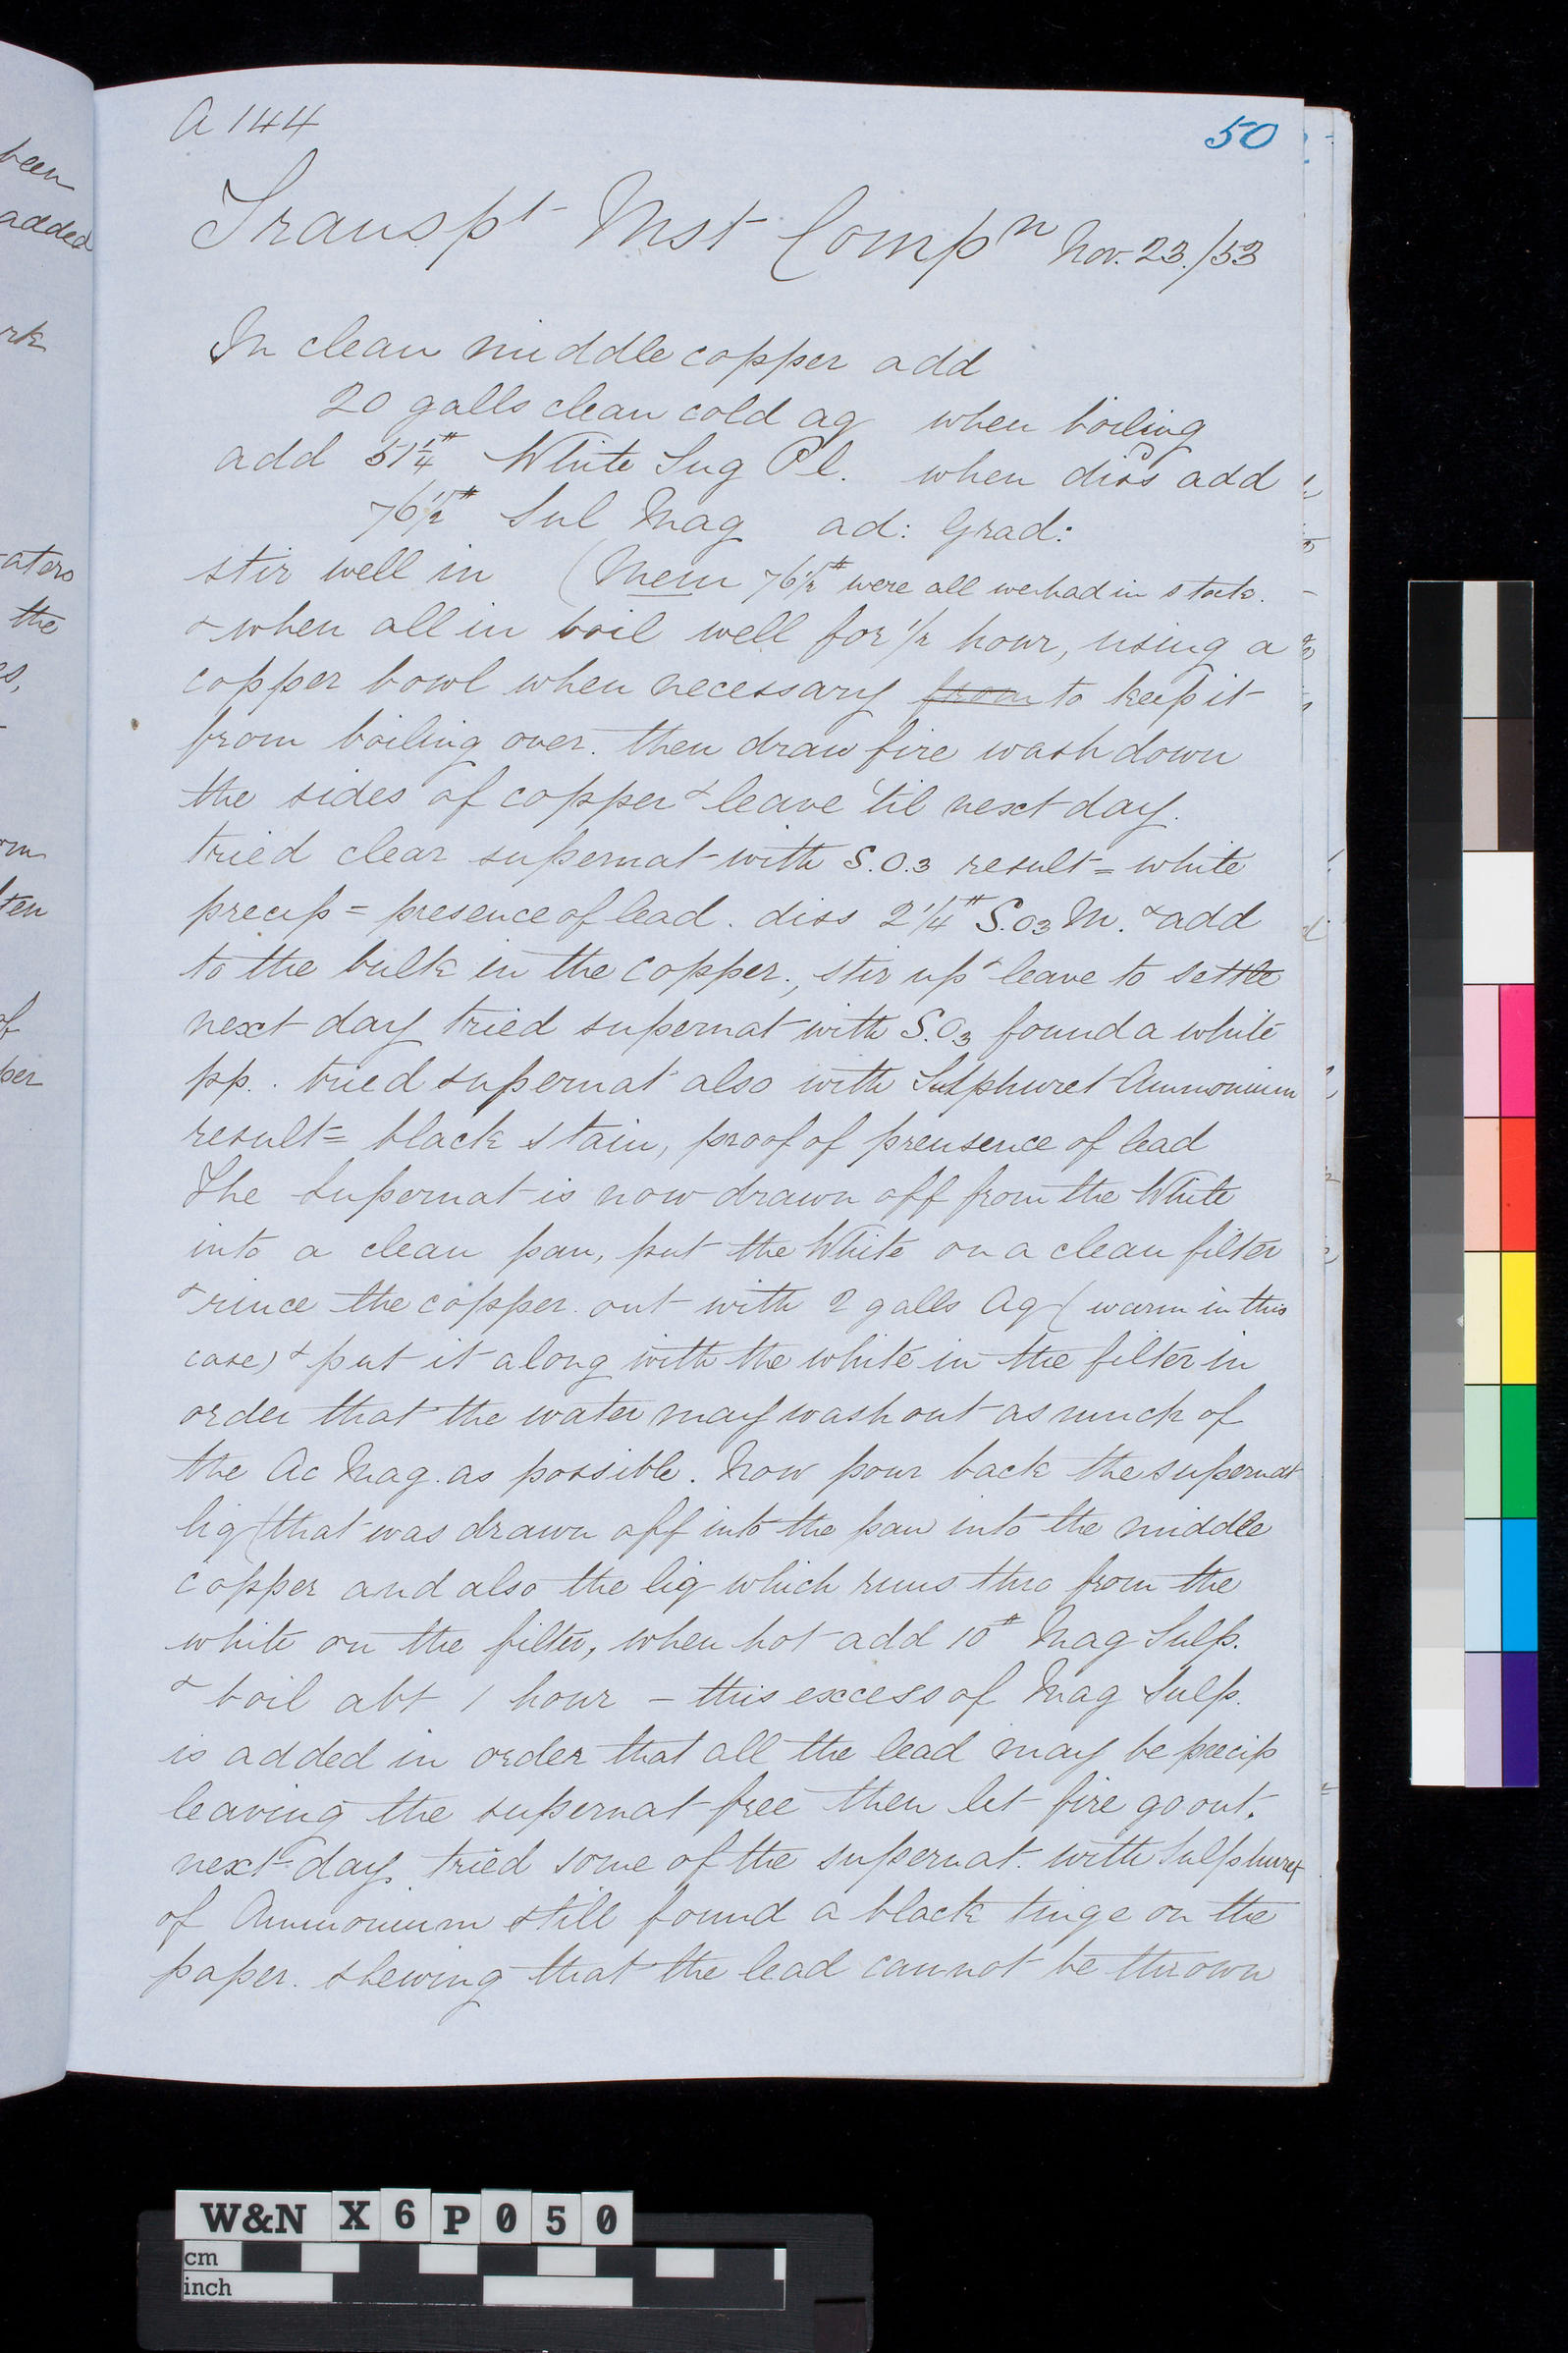 A 144
50
Transpt Mst Compn Nov. 23./53
In clean middle copper add
20 galls clean cold aq when boiling
add 51¼# White Sug Pl. when diss add
76½# Sul Mag ad: Grad:
stir well in (Mem 76½# were all we had in stock.
& when all in boil well for ½ hour, using a
copper bowl when necessary from to keep it
from boiling over. then draw fire wash down
the sides of copper & leave 'til next day.
tried clear supernat with S.O.3 result = white
precip = presence of lead. diss 2¼# S.O3 M. & add
to the bulk in the copper., stir up & leave to settle
next day tried supernat with S.O3 found a white
pp. . tried supernat also with Sulphuret Ammonium
result = black stain, proof of prensence of lead
The supernat is now drawn off from the White
into a clean pan, put the White on a clean filter
& rince the copper. out with 2 galls Aq (warm in this
case) & put it along with the white in the filter in
order that the water may wash out as much of
the Ac Mag. as possible. Now pour back the supernat
liq (that was drawn off into the pan into the middle
copper and also the liq which runs thro from the
white on the filter, when hot add 10# Mag Sulp.
& boil abt 1 hour – this excess of Mag Sulp.
is added in order that all the lead may be precip
leaving the supernat free then let fire go out.
next day. tried some of the supernat. with Sulphuret
of Ammonium still found a black tinge on the
paper. shewing that the lead cannot be thrown
been
added
rk
aters
the
es,
rm
ten
of
per
W&N X6P050
cm
inch